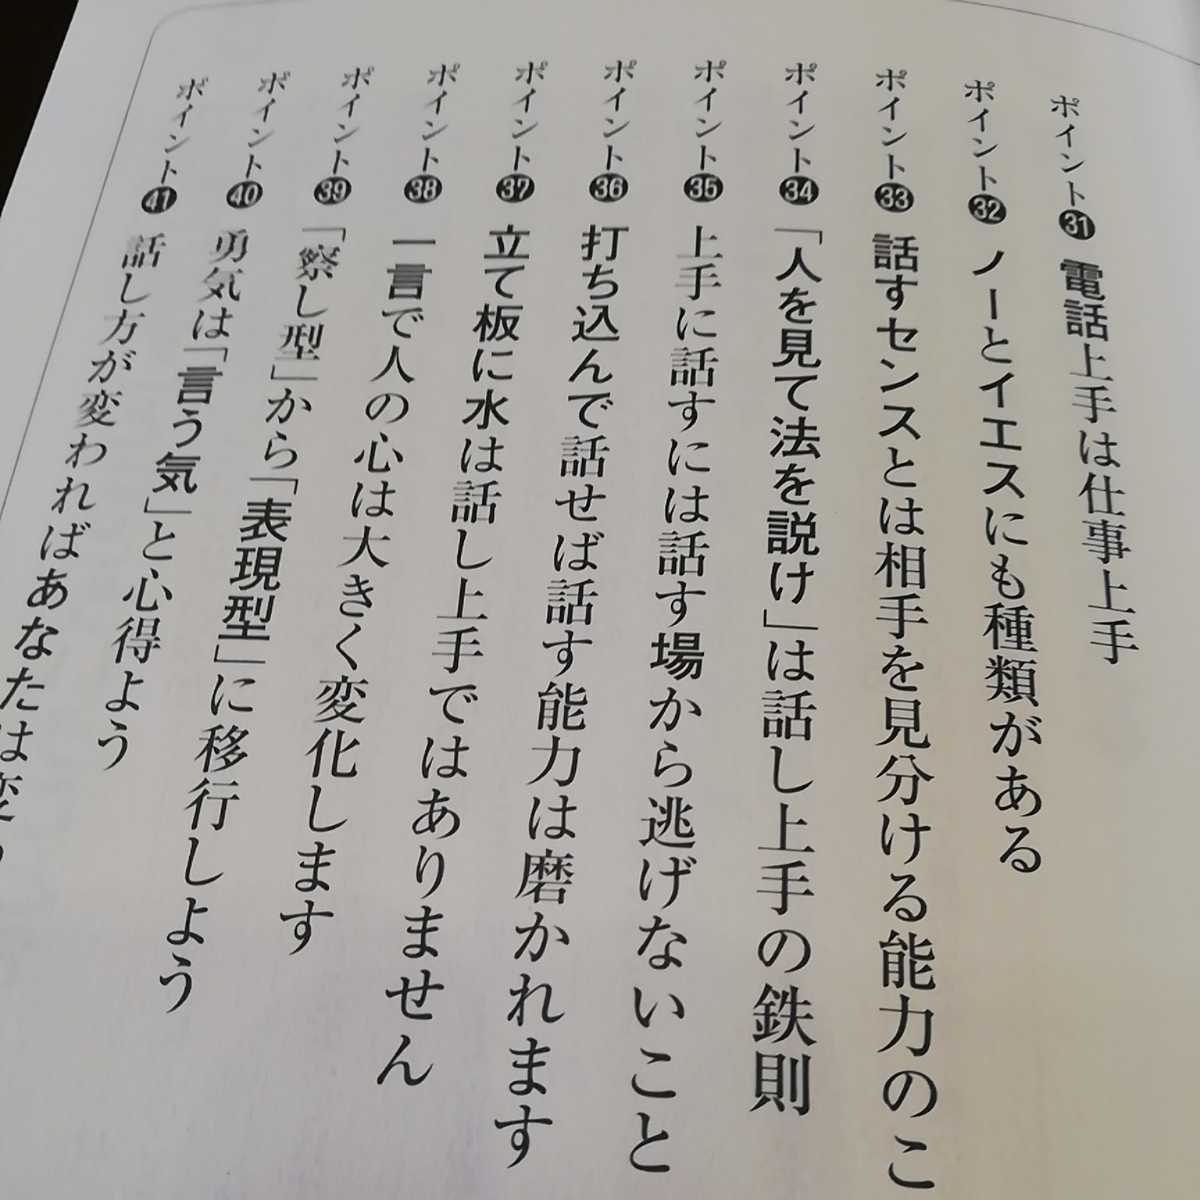 ポイント31 電話上手は仕事上手
ポイント32 ノーとイエスにも種類がある
ポイント33 話すセンスとは相手を見分ける能力のこ
ポイント34 「人を見て法を説け」は話し上手の鉄則
ポイント35 上手に話すには話す場から逃げないこと
ポイント36 打ち込んで話せば話す能力は磨かれます
ポイント37 立て板に水は話し上手ではありません
ポイント38 一言で人の心は大きく変化します
ポイント39 「察し型」から「表現型」に移行しよう
ポイント40 勇気は「言う気」と心得よう
ポイント41 話し方が変わればあなたは変